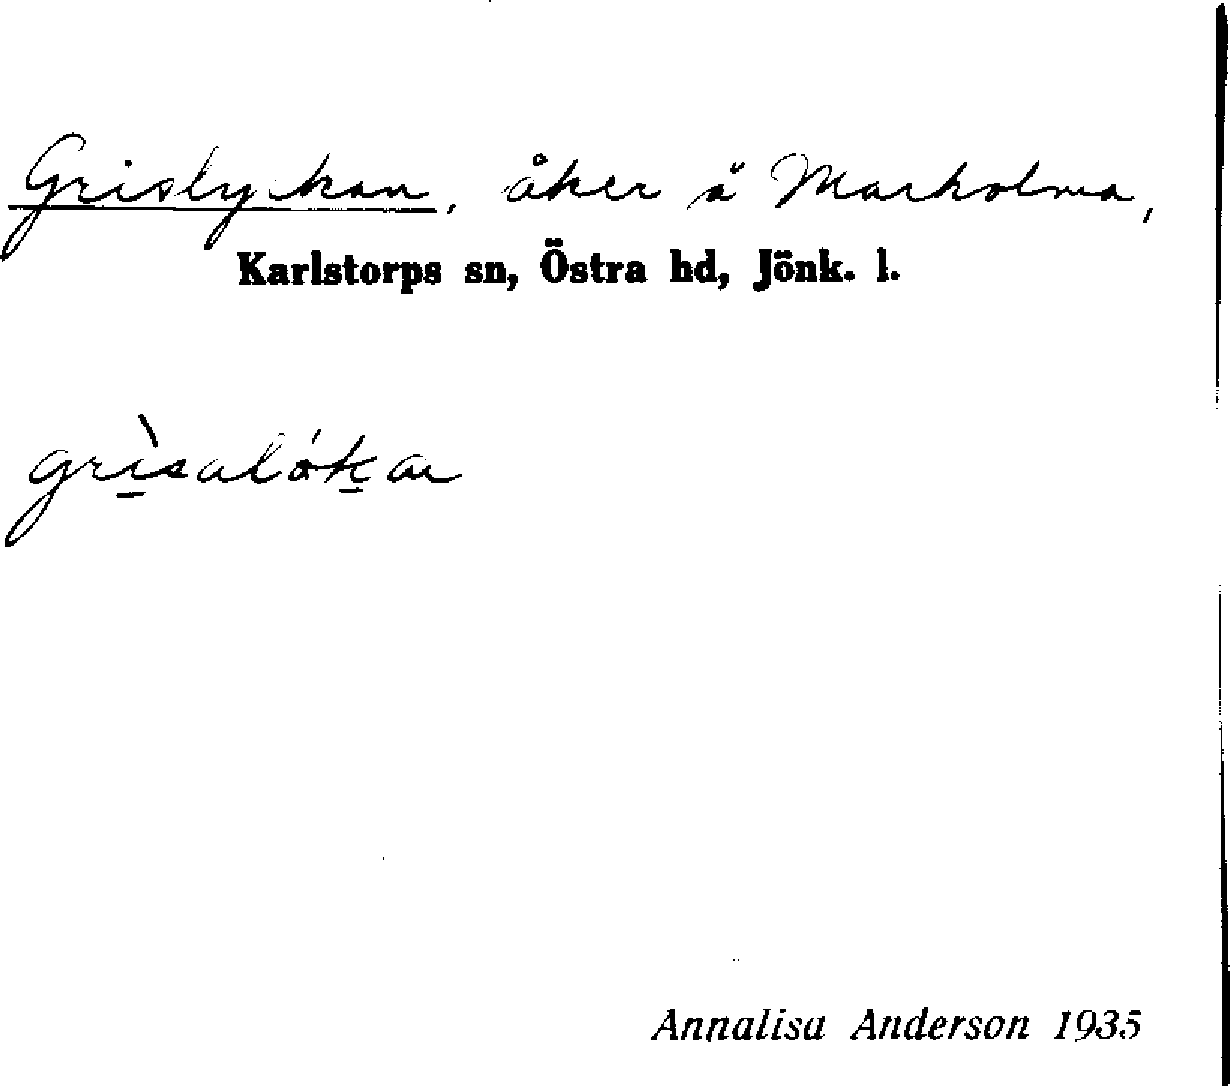 Grislyckan, åker å Marholma,
Karlstorps sn, Östra hd, Jönk. l.
grìsalókan
Annalisa Anderson 1935